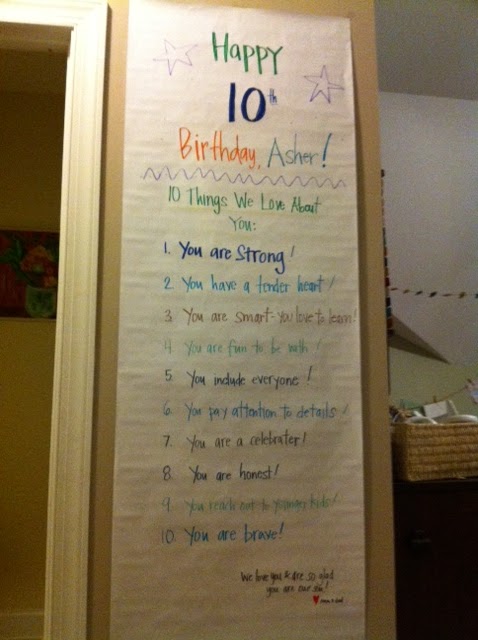 Happy
10th
Birthday, Asher!
10 Things We Love About
You:
1. You are Strong!
2. You have a tender heart!
3. You are smart-you love to learn!
4. You are fun to be with!
5. You include everyone!
6. You pay attention to details!
7. You are a celebrater!
8. You are honest!
9. You reach out to younger kids!
10. You are brave!
We love you & are so glad
you are our son!
♥ mom & dad